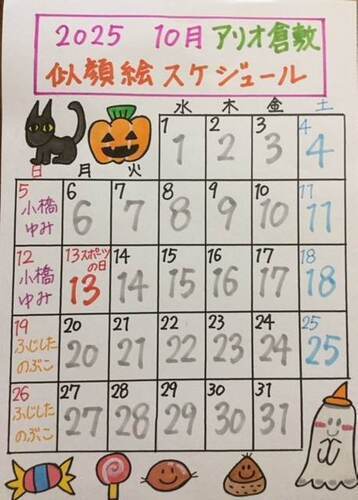 2025 10月 アリオ倉敷
似顔絵スケジュール
水 木 金 土
1 1 2 2 3 3 4 4
日 月 火
5 小橋ゆみ 6 6 7 7 8 8 9 9 10 10 11 11
12 小橋ゆみ 13 スポーツの日 13 14 14 15 15 16 16 17 17 18 18
19 ふじしたのぶこ 20 20 21 21 22 22 23 23 24 24 25 25
26 ふじしたのぶこ 27 27 28 28 29 29 30 30 31 31